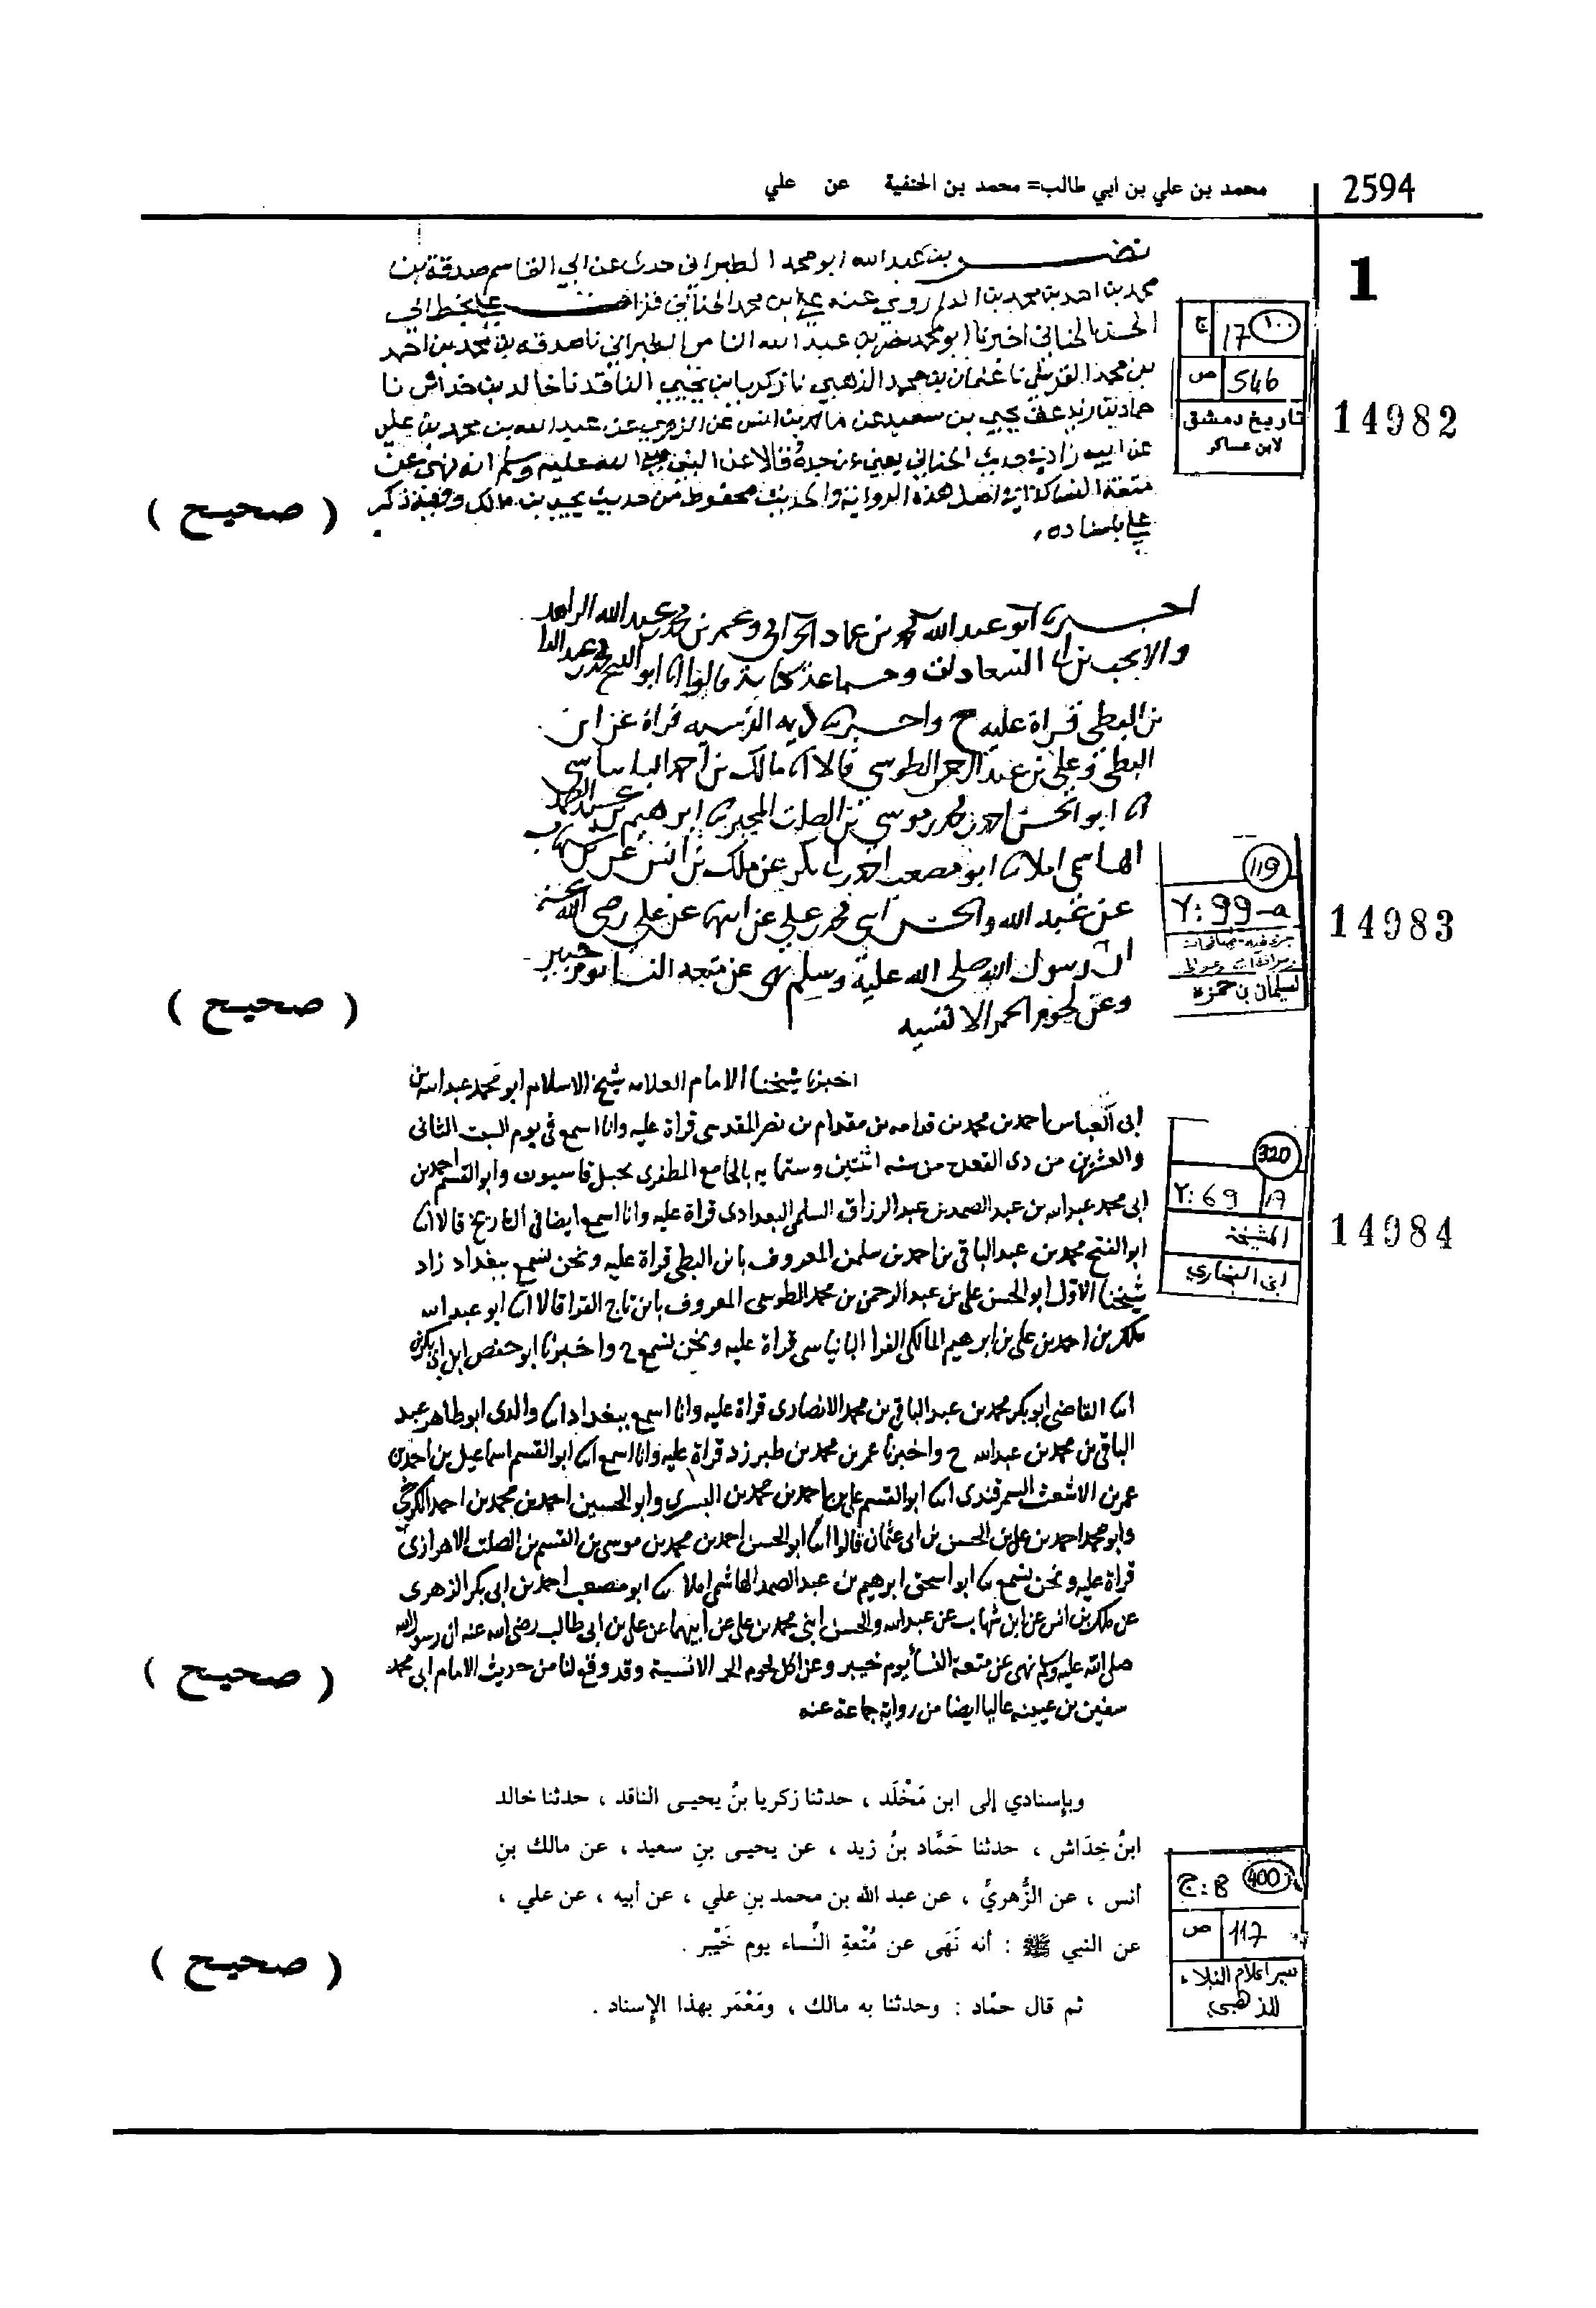 2594
محمد بن علي بن ابي طالب= محمد بن الحنفية عن علي
1
نضر بن عبد الله ابو محمد الطبراني حدث عن ابي القاسم صدقة بن
محمد بن احمد بن محمد بن روى عنه علي بن محمد الحنائي
الحنائي اخبرنا ابو محمد نضر بن عبد الله الطبراني نا صدقه بن محمد بن احمد
بن محمد نا عثمان بن محمد الذهبي نا زكريا بن يحيى الناقد نا خالد بن خداش نا
حماد بن زيد عن يحيى بن سعيد عن مالك بن انس عن الزهري عن عبد الله بن محمد بن علي
عن ابيه زاد في حديث الحنائي يعني عن جده قالا عن النبي صلى الله عليه وسلم انه نهى عن
متعة النسا كذا في اصل هذه الرواية والحديث محفوظ من حديث يحيى بن مالك
علي باسناده
( صحيح )
١٠٠ 17 ج
546 ص
تاريخ دمشق
لابن عساكر
14982
ابو عبد الله محمد بن عماد الحراني وعمر بن عبد الله
والانجب بن ابي السعادات وجماعة كتابة قالوا انا ابو الفتح
بن البطي قراة عليه ح قراة عن ابن
البطي وعلي بن عبد الرحمن الطوسي قالا انا مالك بن احمد البانياسي
انا ابو الحسن احمد بن محمد بن موسى بن الصلت المجبر نا ابرهيم بن عبد الصمد
الهاشمي املا نا ابو مصعب احمد بن ابي بكر عن ملك بن انس عن ابن شهاب
عن عبد الله والحسن ابني محمد بن علي عن ابيهما عن علي رضي الله عنه
ان رسول الله صلى الله عليه وسلم نهى عن متعة النسا يوم خيبر
وعن لحوم الحمر الانسيه
( صحيح )
119
Y: 99-a
لسليمان بن حمزة
14983
اخبرنا شيخنا الامام العلامه شيخ الاسلام ابو محمد عبد الله بن
ابى العباس احمد بن محمد بن قدامه بن مقدام بن نصر المقدسى قراة عليه وانا اسمع فى يوم السبت الثانى
والعشرين من ذى القعدة من سنه اثنتين وستمايه بالجامع المظفرى بجبل قاسيون وابو القسم احمد بن
ابى محمد عبد الله بن عبد الصمد بن عبد الرزاق السلمى البغدادى قراة عليه وانا اسمع ايضا فى التاريخ قالا انا
ابو الفتح محمد بن عبد الباقى بن احمد بن سلمن المعروف بابن البطى قراة عليه ونحن نسمع ببغداد زاد
شيخنا الاول ابو الحسن على بن عبد الرحمن بن محمد الطوسى المعروف بابن تاج القرا قالا انا ابو عبد الله
ملك بن احمد بن على بن ابرهيم المالكى الفرا البانياسى قراة عليه ونحن نسمع ح واخبرنا ابو حفص ابن ابى بكر
انا القاضى ابو بكر محمد بن عبد الباقى بن محمد الانصارى قراة عليه وانا اسمع ببغداد انا والدى ابو طاهر عبد
الباقى بن محمد بن عبد الله ح واخبرنا عمر بن محمد بن طبرزد قراة عليه وانا اسمع انا ابو القسم اسماعيل بن احمد بن
عمر بن الاشعث السمرقندى انا ابو القسم على بن احمد بن محمد بن البسرى وابو الحسين احمد بن محمد بن احمد الكرخى
وابو محمد احمد بن على بن الحسن بن ابى عثمان قالوا انا ابو الحسن احمد بن محمد بن موسى بن القسم بن الصلت الاهوازى
قراة عليه ونحن نسمع نا ابو اسحق ابرهيم بن عبد الصمد الهاشمى املا نا ابو مصعب احمد بن ابى بكر الزهرى
عن ملك بن انس عن ابن شهاب عن عبد الله والحسن ابنى محمد بن على عن ابيهما عن على بن ابى طالب رضى الله عنه ان رسول الله
صلى الله عليه وسلم نهى عن متعة النسأ يوم خيبر وعن اكل لحوم الحمر الانسية وقد وقع لنا من حديث الامام ابى محمد
سفين بن عيينه عاليا ايضا من رواية جماعة عنه
( صحيح )
320
Y: 69 17
المشيخة
ابن البخاري
14984
وبإسنادي إلى ابن مَخْلَد ، حدثنا زكريا بنُ يحيـى الناقد ، حدثنا خالد
ابنُ خِدَاش ، حدثنا حَمَّاد بنُ زيد ، عن يحيـى بنِ سعيد ، عن مالك بنِ
أنس ، عن الزُّهريِّ ، عن عبد الله بن محمد بنِ علي ، عن أبيه ، عن علي ،
عن النبي ﷺ : أنه نَهَى عن مُتْعةِ النِّساء يوم خَيْبر .
ثم قال حمَّاد : وحدثنا به مالك ، ومَعْمَر بهذا الإِسناد .
( صحيح )
400 ج: 8
117 ص
سير اعلام النبلاء
للذهبي